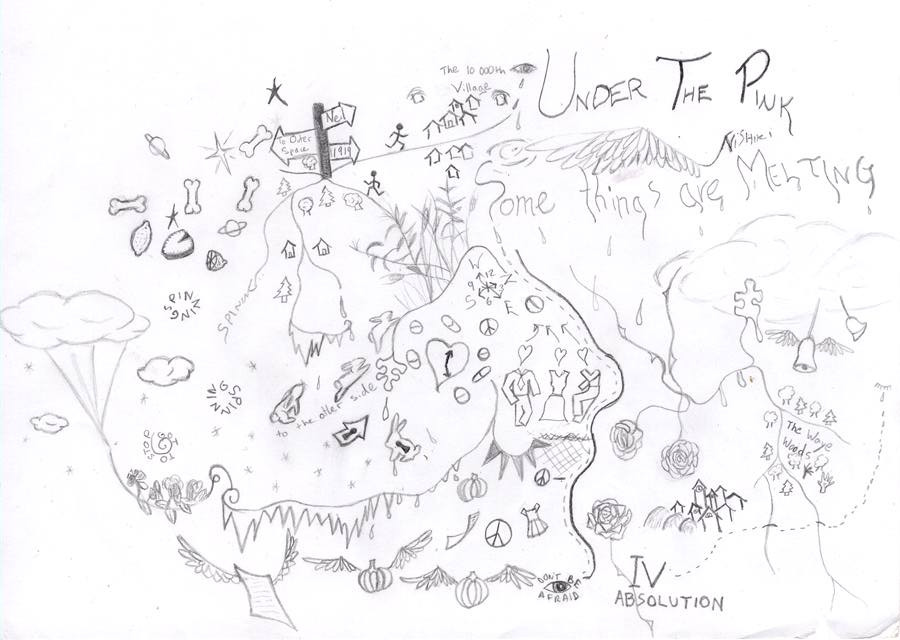 The 10 000th
Village
UNDER THE PINK
Neil
To Outer
Space
1919
Nishiki
Some things are MELTING
SPINNING
SPINNING
SPINNING
to the other side
W
N
E
S
12
9
6
GO TO STOP
The Wave
Woods
DON'T BE
AFRAID
IV
ABSOLUTION